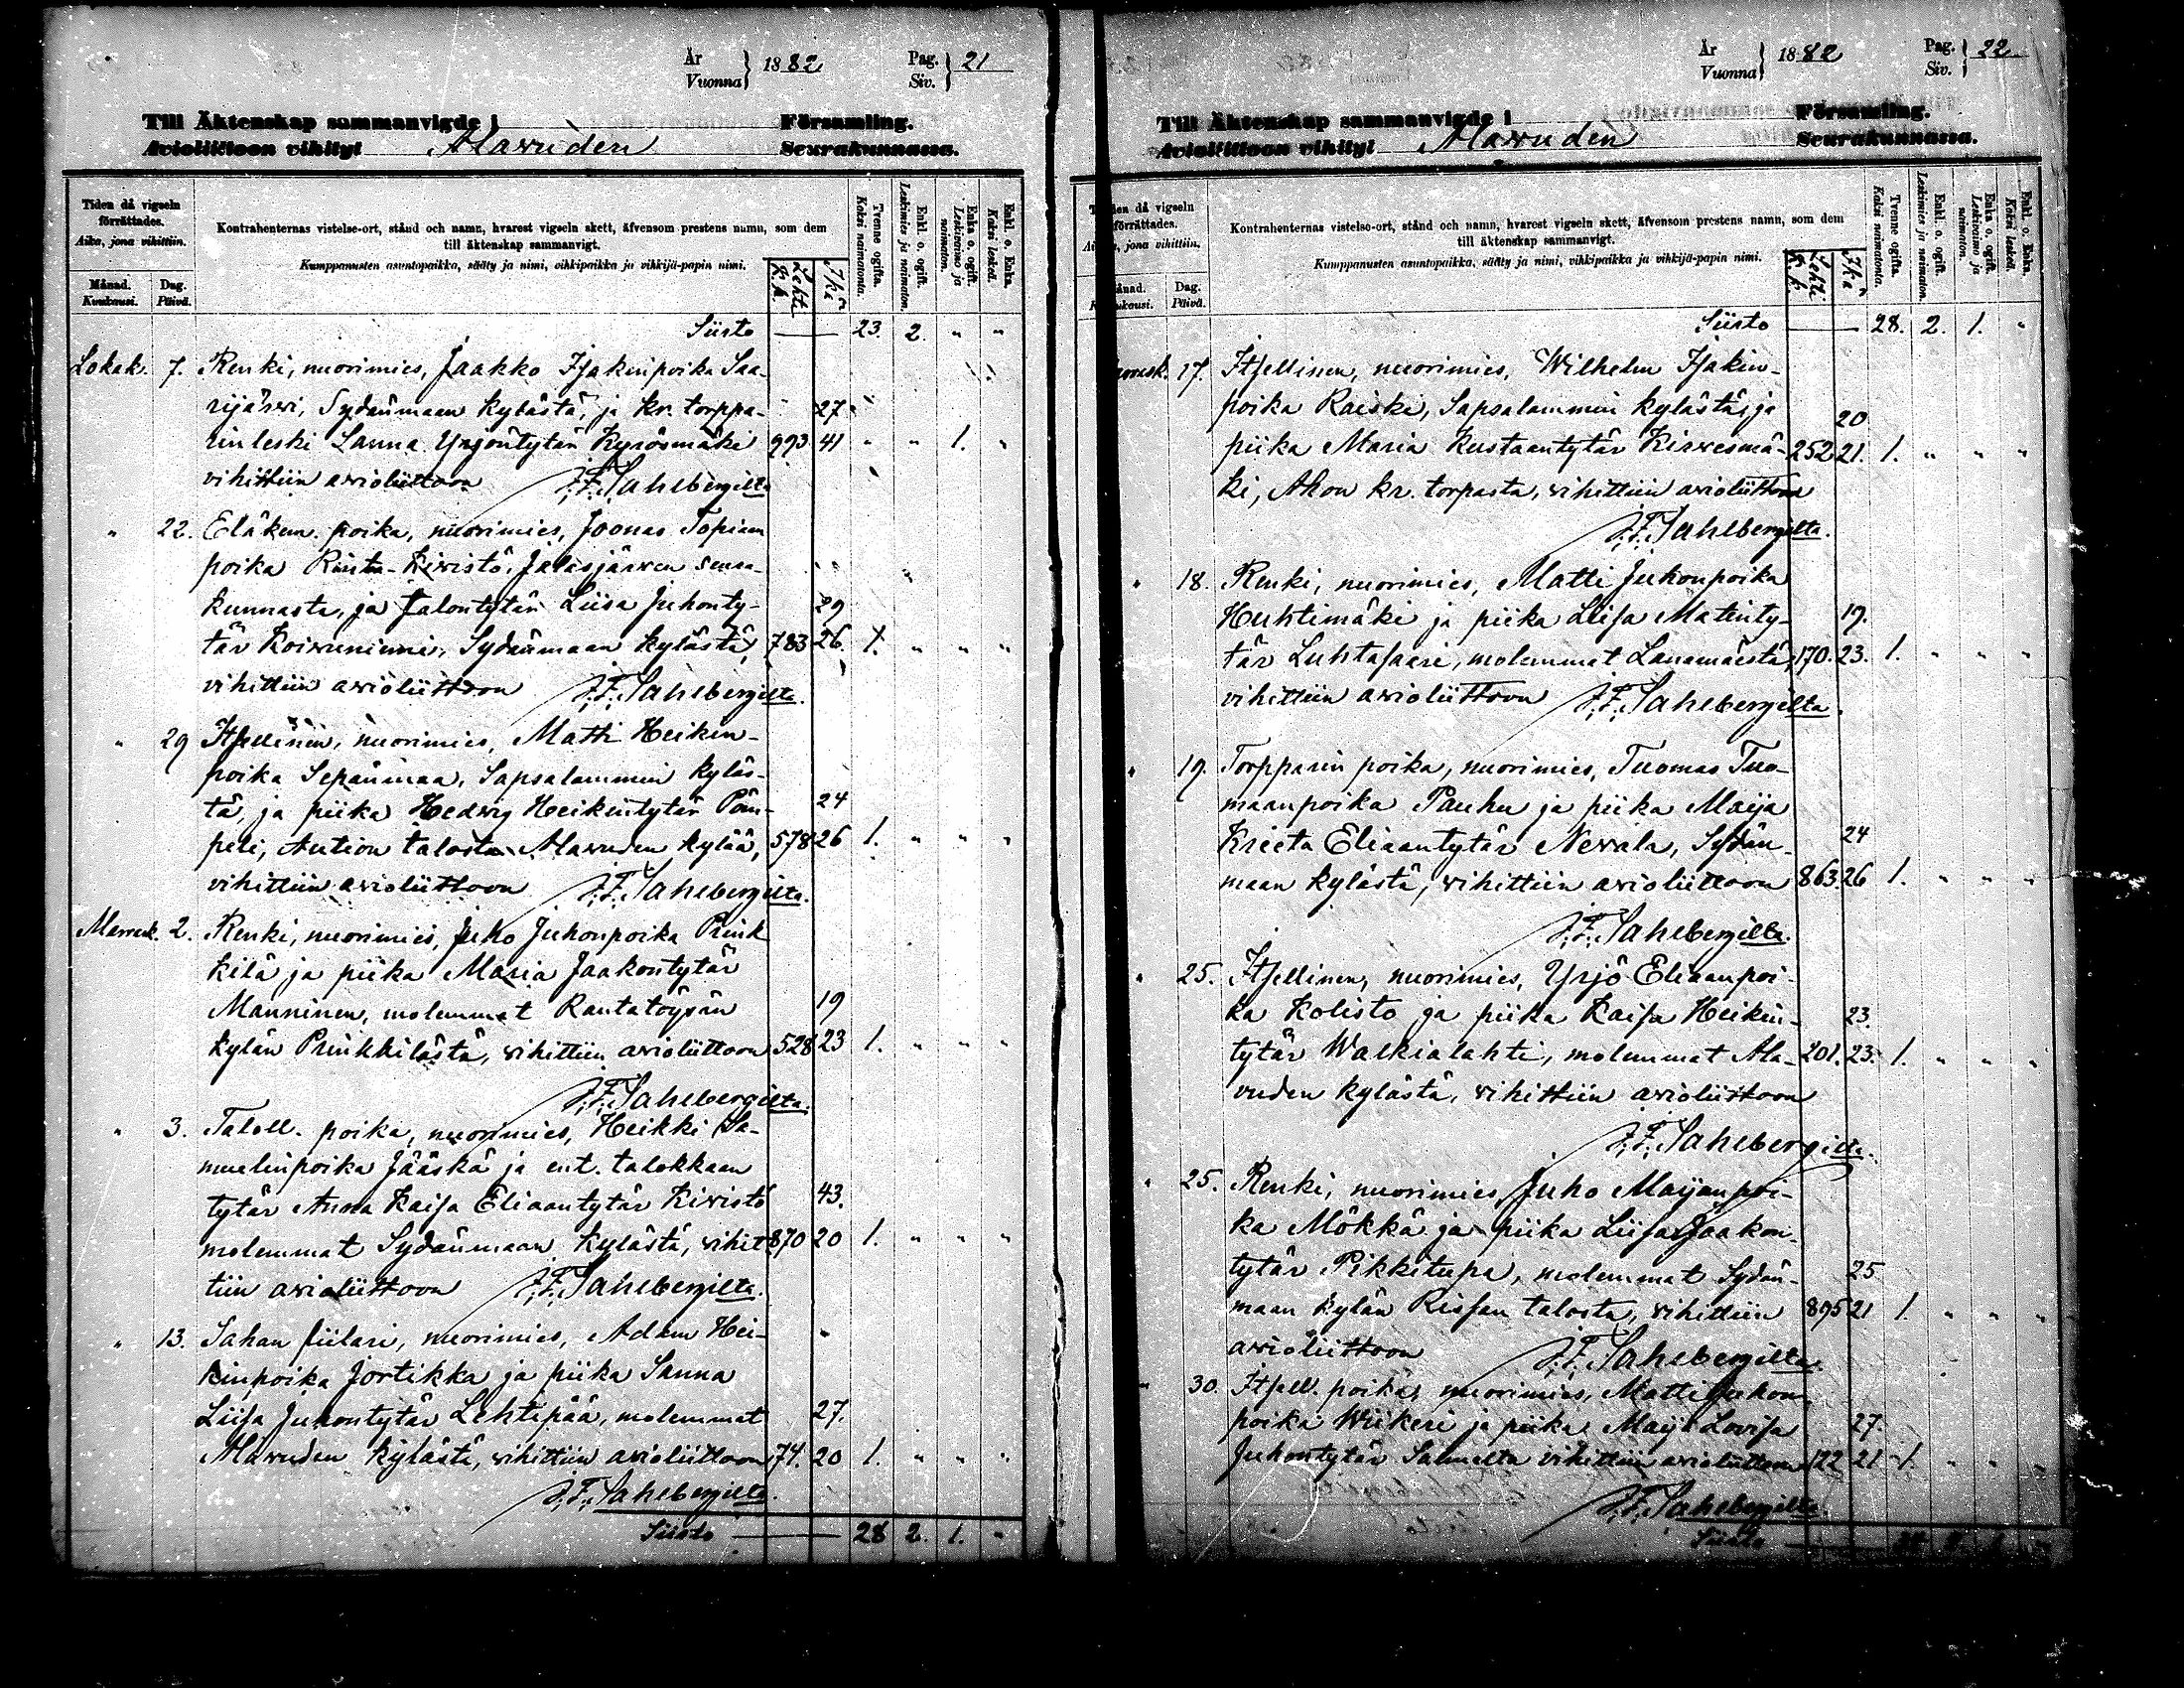 År
Vuonna } 1882
Pag.
Siv. } 21
Till Äktenskap sammanvigde i Församling.
Avioliittoon vihityt Alawuden Seurakunnassa.
Tiden då vigseln förrättades.
Aika, jona vihittiin.
Månad.
Kuukausi.
Dag.
Päivä.
Kontrahenternas vistelse-ort, stånd och namn, hvarest vigseln skett, äfvensom prestens namn, som dem
till äktenskap sammanvigt.
Kumppanusten asuntopaikka, sääty ja nimi, vihkipaikka ja vihkijä-papin nimi.
Lehti K.k.
Ikä
Tvenne ogifta.
Kaksi naimatonta.
Enkl. o. ogift.
Leskimies ja naimaton.
Enka o. ogift.
Leskivaimo ja naimaton.
Enkl. o. Enka.
Kaksi leskeä.
Siirto — 23. 2. " "
Lokak. 7. Renki, nuorimies, Jaakko Isakinpoika Saa-
rijärwi, Sydänmaan kylästä, ja kr. torppa- 27
rin leski Sanna Yrjöntytär Kyrösmäki 993 41 " " 1. "
vihittiin awioliittoon J.F. Sahlbergilta
" 22. Eläkem. poika, nuorimies, Joonas Topiaan
poika Rinta-Kiwistö, Jalasjärwen seura-
kunnasta, ja talontytär Liisa Juhonty- 29
tär Koiwuniemi, Sydänmaan kylästä, 783 26. 1. " " "
vihittiin awioliittoon J.F. Sahlbergilta.
" 29 Itsellinen, nuorimies, Matti Heikin-
poika Sepänmaa, Sapsalammin kyläs-
tä, ja piika Hedwig Heikintytär Pöm- 24
peli, Aution talosta Alawuden kylää, 578 26 1. " " "
vihittiin awioliittoon J.F. Sahlbergilta.
Marrask. 2. Renki, nuorimies, Juho Juhonpoika Prink
kilä ja piika Maria Jaakontytär
Manninen, molemmat Rantatöysän 19
kylän Prinkkilästä, wihittiin awioliittoon 528 23 1. " " "
J.F. Sahlbergilta.
" 3. Taloll. poika, nuorimies, Heikki Sa-
muelinpoika Jääskä ja ent. talokkaan
tytär Anna Kaisa Eliaantytär Kiwistö 43.
molemmat Sydänmaan kylästä, wihit 870 20 1. " " "
tiin awioliittoon J.F. Sahlbergilta.
" 13. Sahan fiilari, nuorimies, Adam Hei-
kinpoika Jortikka ja piika Sanna
Liisa Juhontytär Lehtipää, molemmat 27.
Alawuden kylästä, wihittiin awioliittoon 74. 20 1. " " "
J.F. Sahlbergilta.
Siirto — 28 2. 1. "
År
Vuonna } 1882
Pag.
Siv. } 22
Till Äktenskap sammanvigde i Församling.
Avioliittoon vihityt Alawuden Seurakunnassa.
den då vigseln
förrättades.
jona vihittiin.
Dag.
Päivä.
Kontrahenternas vistelse-ort, stånd och namn, hvarest vigseln skett, äfvensom prestens namn, som dem
till äktenskap sammanvigt.
Kumppanusten asuntopaikka, sääty ja nimi, vihkipaikka ja vihkijä-papin nimi.
Lehti K.k.
Ikä
Tvenne ogifta.
Kaksi naimatonta.
Enkl. o. ogift.
Leskimies ja naimaton.
Enka o. ogift.
Leskivaimo ja naimaton.
Enkl. o. Enka.
Kaksi leskeä.
Siirto — 28. 2. 1. "
17. Itsellinen, nuorimies, Wilhelm Isakin-
poika Raiski, Sapsalammin kylästä, ja 20
piika Maria Kustaantytär Kirwesmä- 252 21. 1. " " "
ki, Ahon kr. torpasta, wihittiin awioliittoon
J.F. Sahlbergilta.
" 18. Renki, nuorimies, Matti Juhonpoika
Huhtimäki ja piika Liisa Matinty- 19.
tär Luhtasaari, molemmat Lanamäestä, 170. 23. 1. " " "
vihittiin awioliittoon J.F. Sahlbergilta.
" 19. Torpparin poika, nuorimies, Tuomas Tuo-
maanpoika Pauhu ja piika Maija
Krieta Eliaantytär Newala, Sydän- 24
maan kylästä, wihittiin awioliittoon 863. 26 1. " " "
J.F. Sahlbergilta.
" 25. Itsellinen, nuorimies, Yrjö Eliaanpoi-
ka Kolisto ja piika Kaisa Heikin- 23.
tytär Walkialahti, molemmat Ala- 201. 23. 1. " " "
vuden kylästä, wihittiin awioliittoon
J.F. Sahlbergilta.
" 25. Renki, nuorimies, Juho Maijanpoi-
ka Mökkä ja piika Liisa Jaakon-
tytär Pikkitupa, molemmat Sydän- 25
maan kylän Rissan talosta, wihittiin 895 21 1. " " "
awioliittoon J.F. Sahlbergilta.
" 30. Itsell. poika, nuorimies, Matti Juhon
poika Wiikeri ja piika Maija Lovisa 27.
Juhontytär Salmelta vihittiin awioliittoon 122 21 1. " " "
J.F. Sahlbergilta.
Siirto